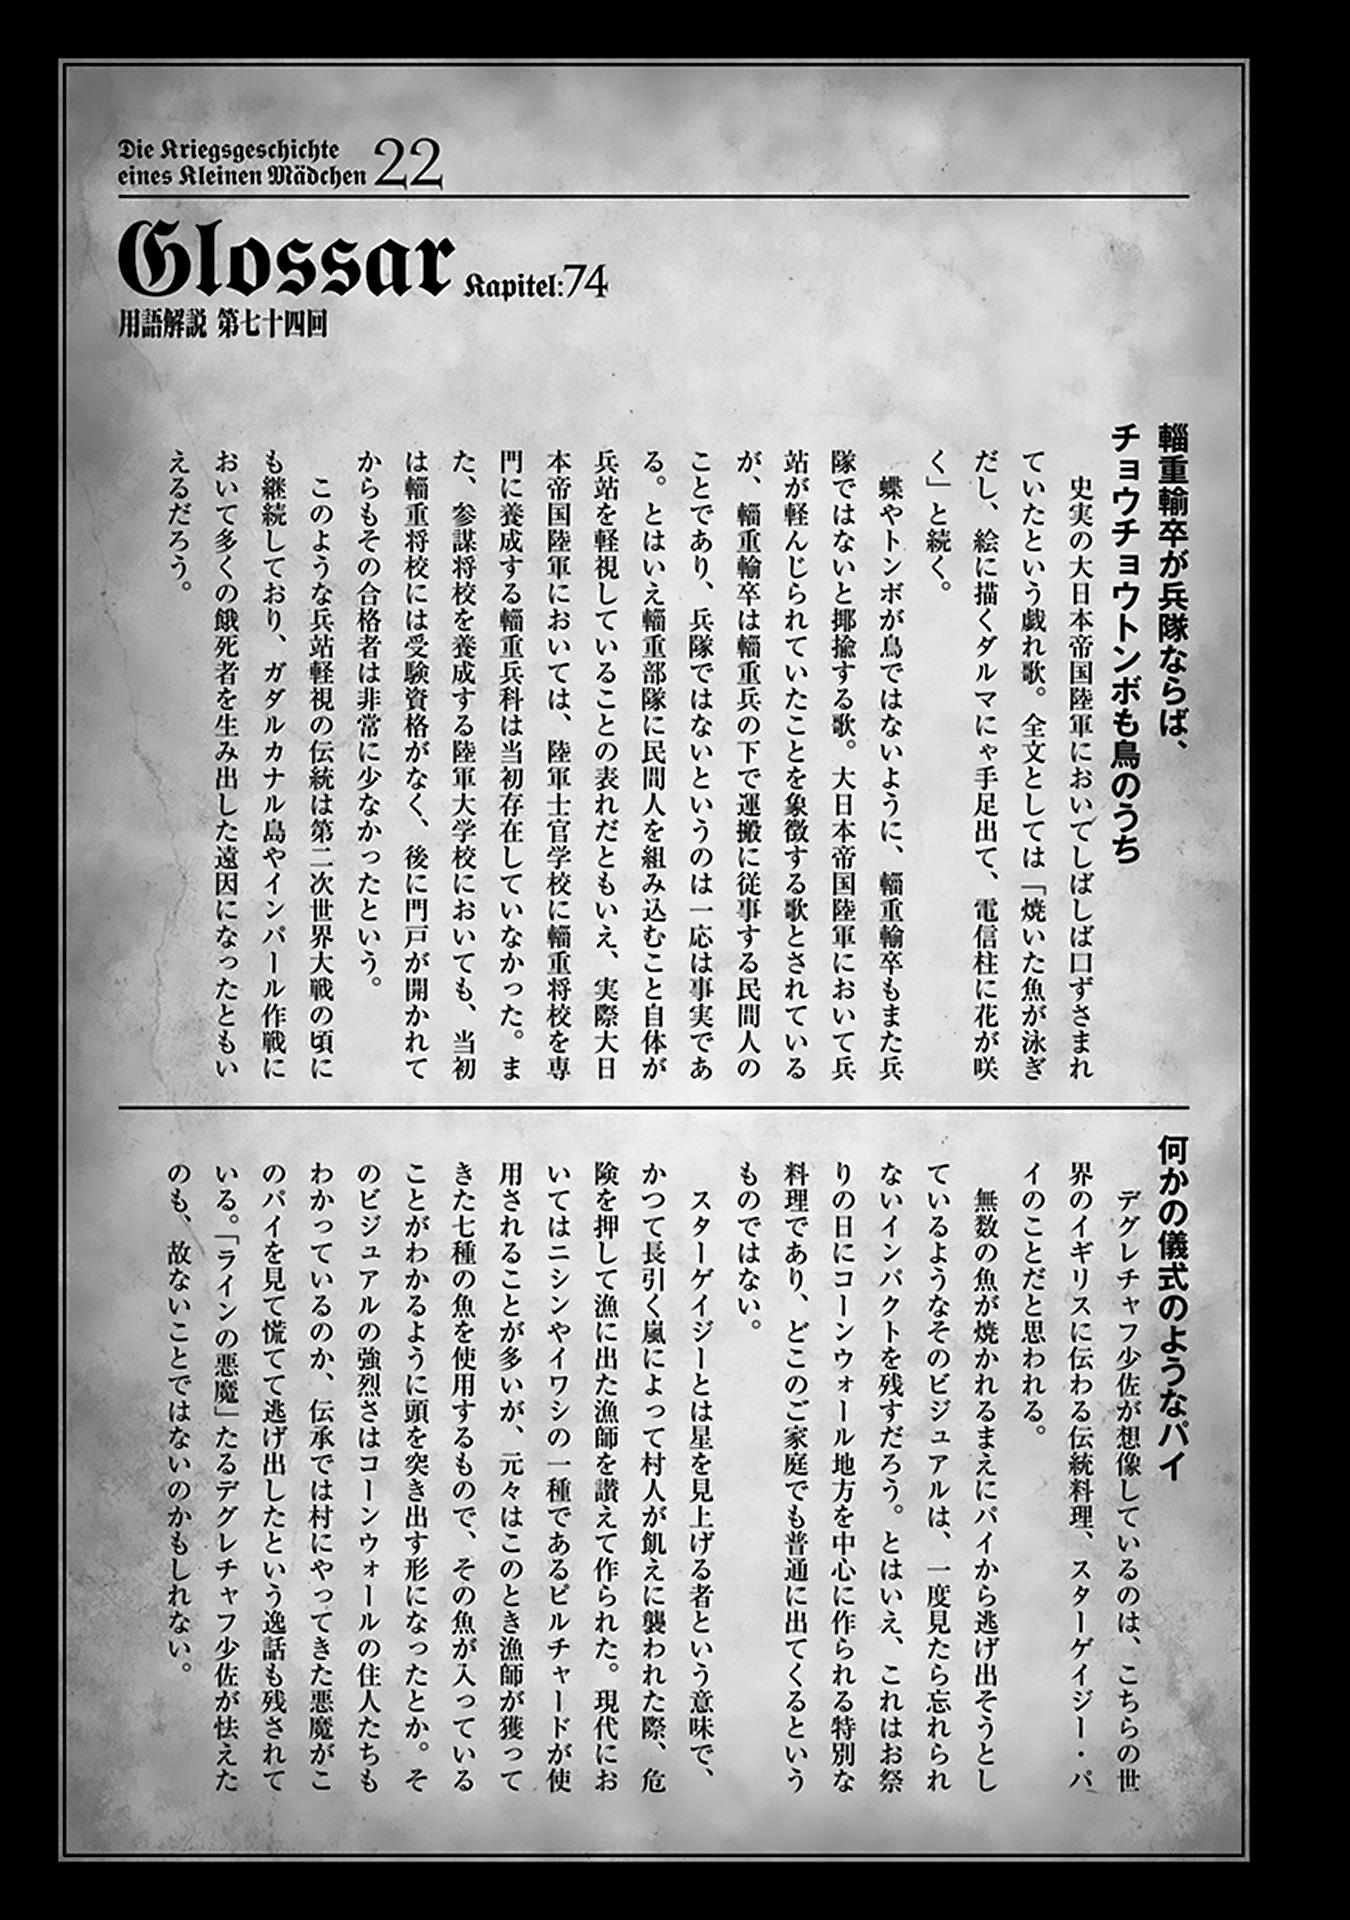 Die Kriegsgeschichte
eines Kleinen Mädchen 22
Glossar Kapitel:74
用語解説 第七十四回
輜重輸卒が兵隊ならば、
チョウチョウトンボも鳥のうち
史実の大日本帝国陸軍においてしばしば口ずさまれ
ていたという戯れ歌。全文としては「焼いた魚が泳ぎ
だし、絵に描くダルマにゃ手足出て、電信柱に花が咲
く」と続く。
蝶やトンボが鳥ではないように、輜重輸卒もまた兵
隊ではないと揶揄する歌。大日本帝国陸軍において兵
站が軽んじられていたことを象徴する歌とされている
が、輜重輸卒は輜重兵の下で運搬に従事する民間人の
ことであり、兵隊ではないというのは一応は事実であ
る。とはいえ輜重部隊に民間人を組み込むこと自体が
兵站を軽視していることの表れだともいえ、実際大日
本帝国陸軍においては、陸軍士官学校に輜重将校を専
門に養成する輜重兵科は当初存在していなかった。ま
た、参謀将校を養成する陸軍大学校においても、当初
は輜重将校には受験資格がなく、後に門戸が開かれて
からもその合格者は非常に少なかったという。
このような兵站軽視の伝統は第二次世界大戦の頃に
も継続しており、ガダルカナル島やインパール作戦に
おいて多くの餓死者を生み出した遠因になったともい
えるだろう。
何かの儀式のようなパイ
デグレチャフ少佐が想像しているのは、こちらの世
界のイギリスに伝わる伝統料理、スターゲイジー・パ
イのことだと思われる。
無数の魚が焼かれるまえにパイから逃げ出そうとし
ているようなそのビジュアルは、一度見たら忘れられ
ないインパクトを残すだろう。とはいえ、これはお祭
りの日にコーンウォール地方を中心に作られる特別な
料理であり、どこのご家庭でも普通に出てくるという
ものではない。
スターゲイジーとは星を見上げる者という意味で、
かつて長引く嵐によって村人が飢えに襲われた際、危
険を押して漁に出た漁師を讃えて作られた。現代にお
いてはニシンやイワシの一種であるピルチャードが使
用されることが多いが、元々はこのとき漁師が獲って
きた七種の魚を使用するもので、その魚が入っている
ことがわかるように頭を突き出す形になったとか。そ
のビジュアルの強烈さはコーンウォールの住人たちも
わかっているのか、伝承では村にやってきた悪魔がこ
のパイを見て慌てて逃げ出したという逸話も残されて
いる。「ラインの悪魔」たるデグレチャフ少佐が怯えた
のも、故ないことではないのかもしれない。